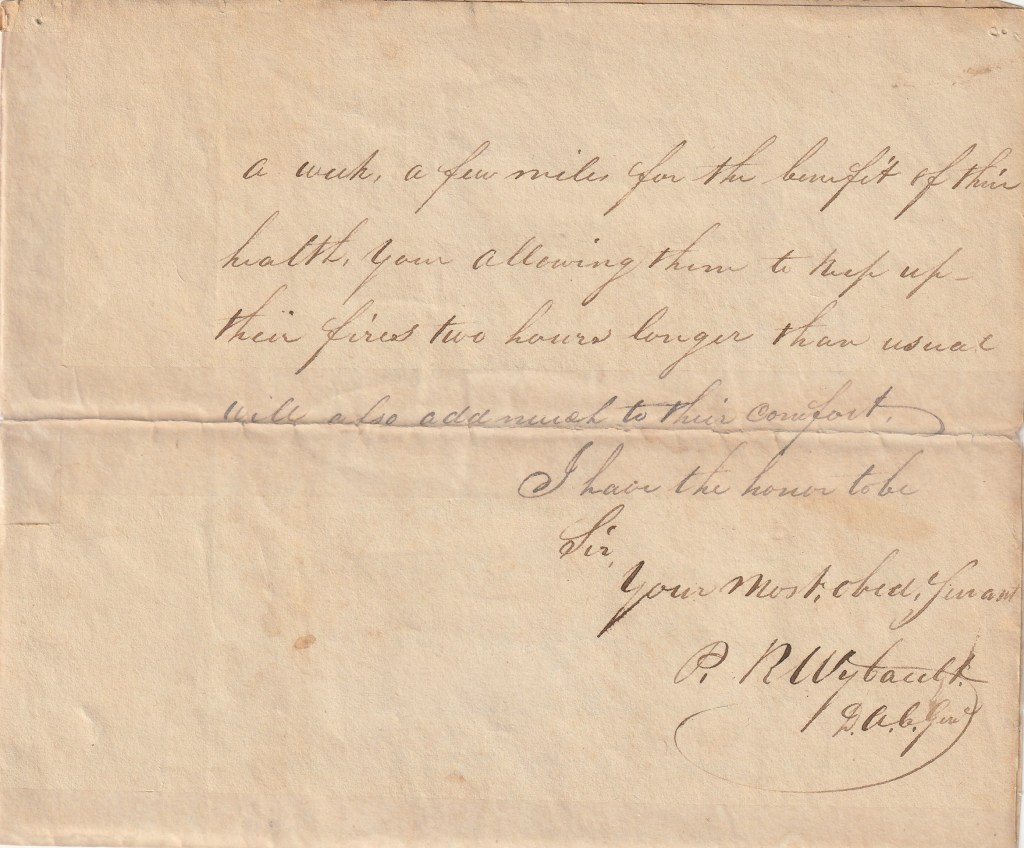 a week, a few miles for the benefit of their
health, your allowing them to keep up
their fires two hours longer than usual
will also add much to their comfort.
I have the honor to be
Sir,
Your Most. obedt. Servant
P. R Wybault.
D. A. C. Genl